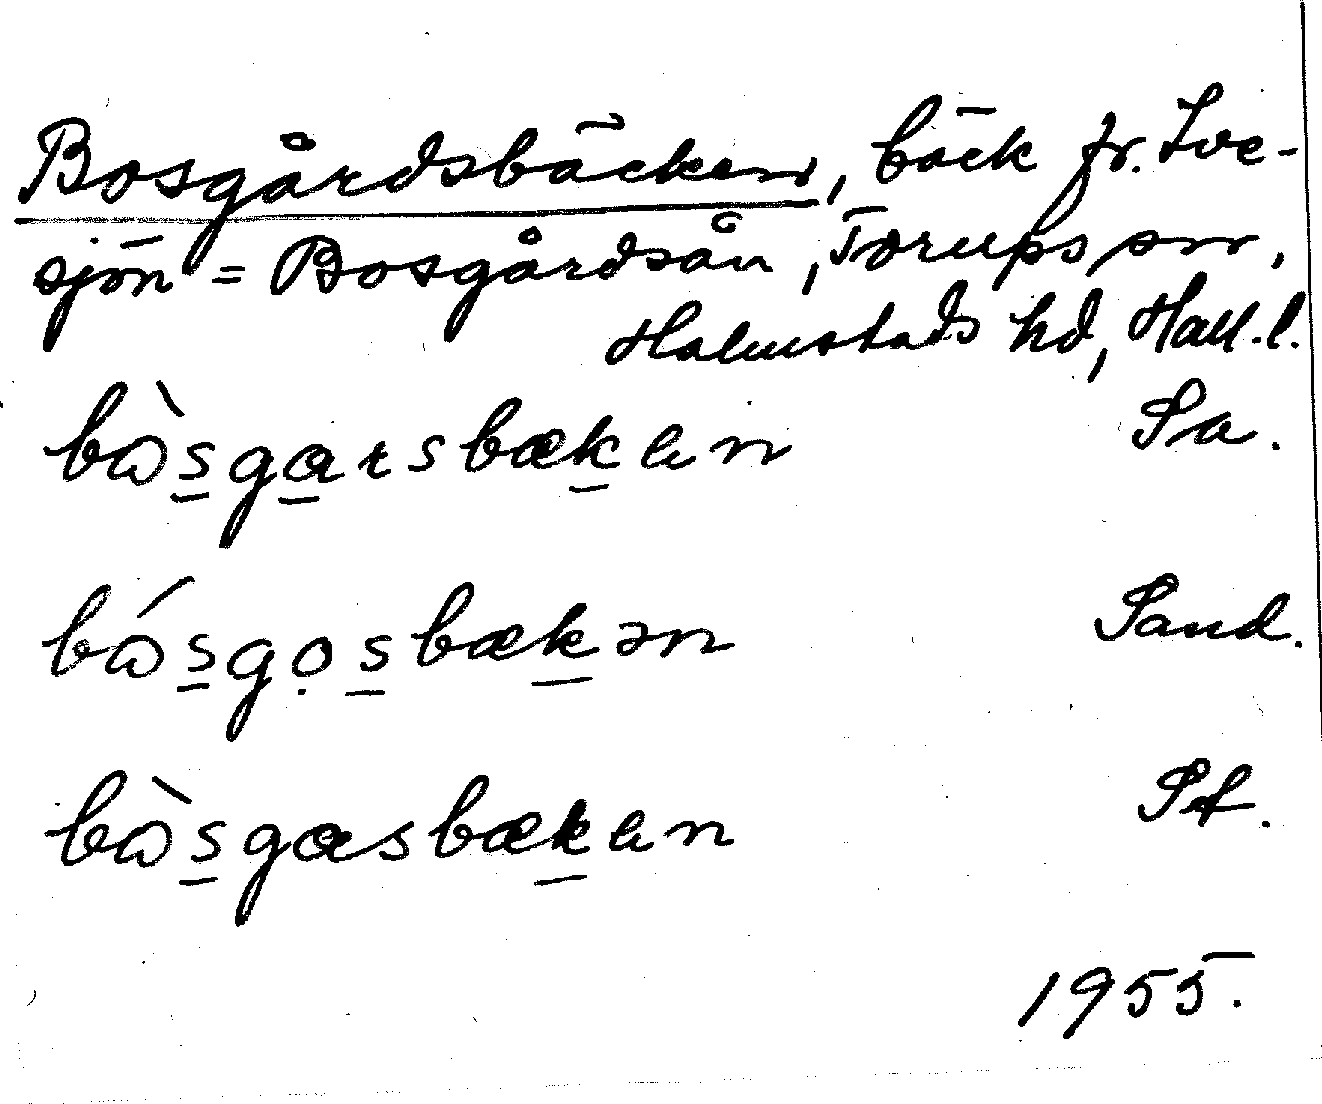 Bosgårdsbäcken, bäck fr. Sve-
sjön = Bosgårdsån, Torups sn,
Halmstads hd, Hall.l.
bɷ̀s̠gɑ̠rsbæk̠ən Sa.
bɷ́s̠gọs̠bæk̠ən Sand.
bɷ̀s̠gɑsbæk̠ən Sf.
1955.